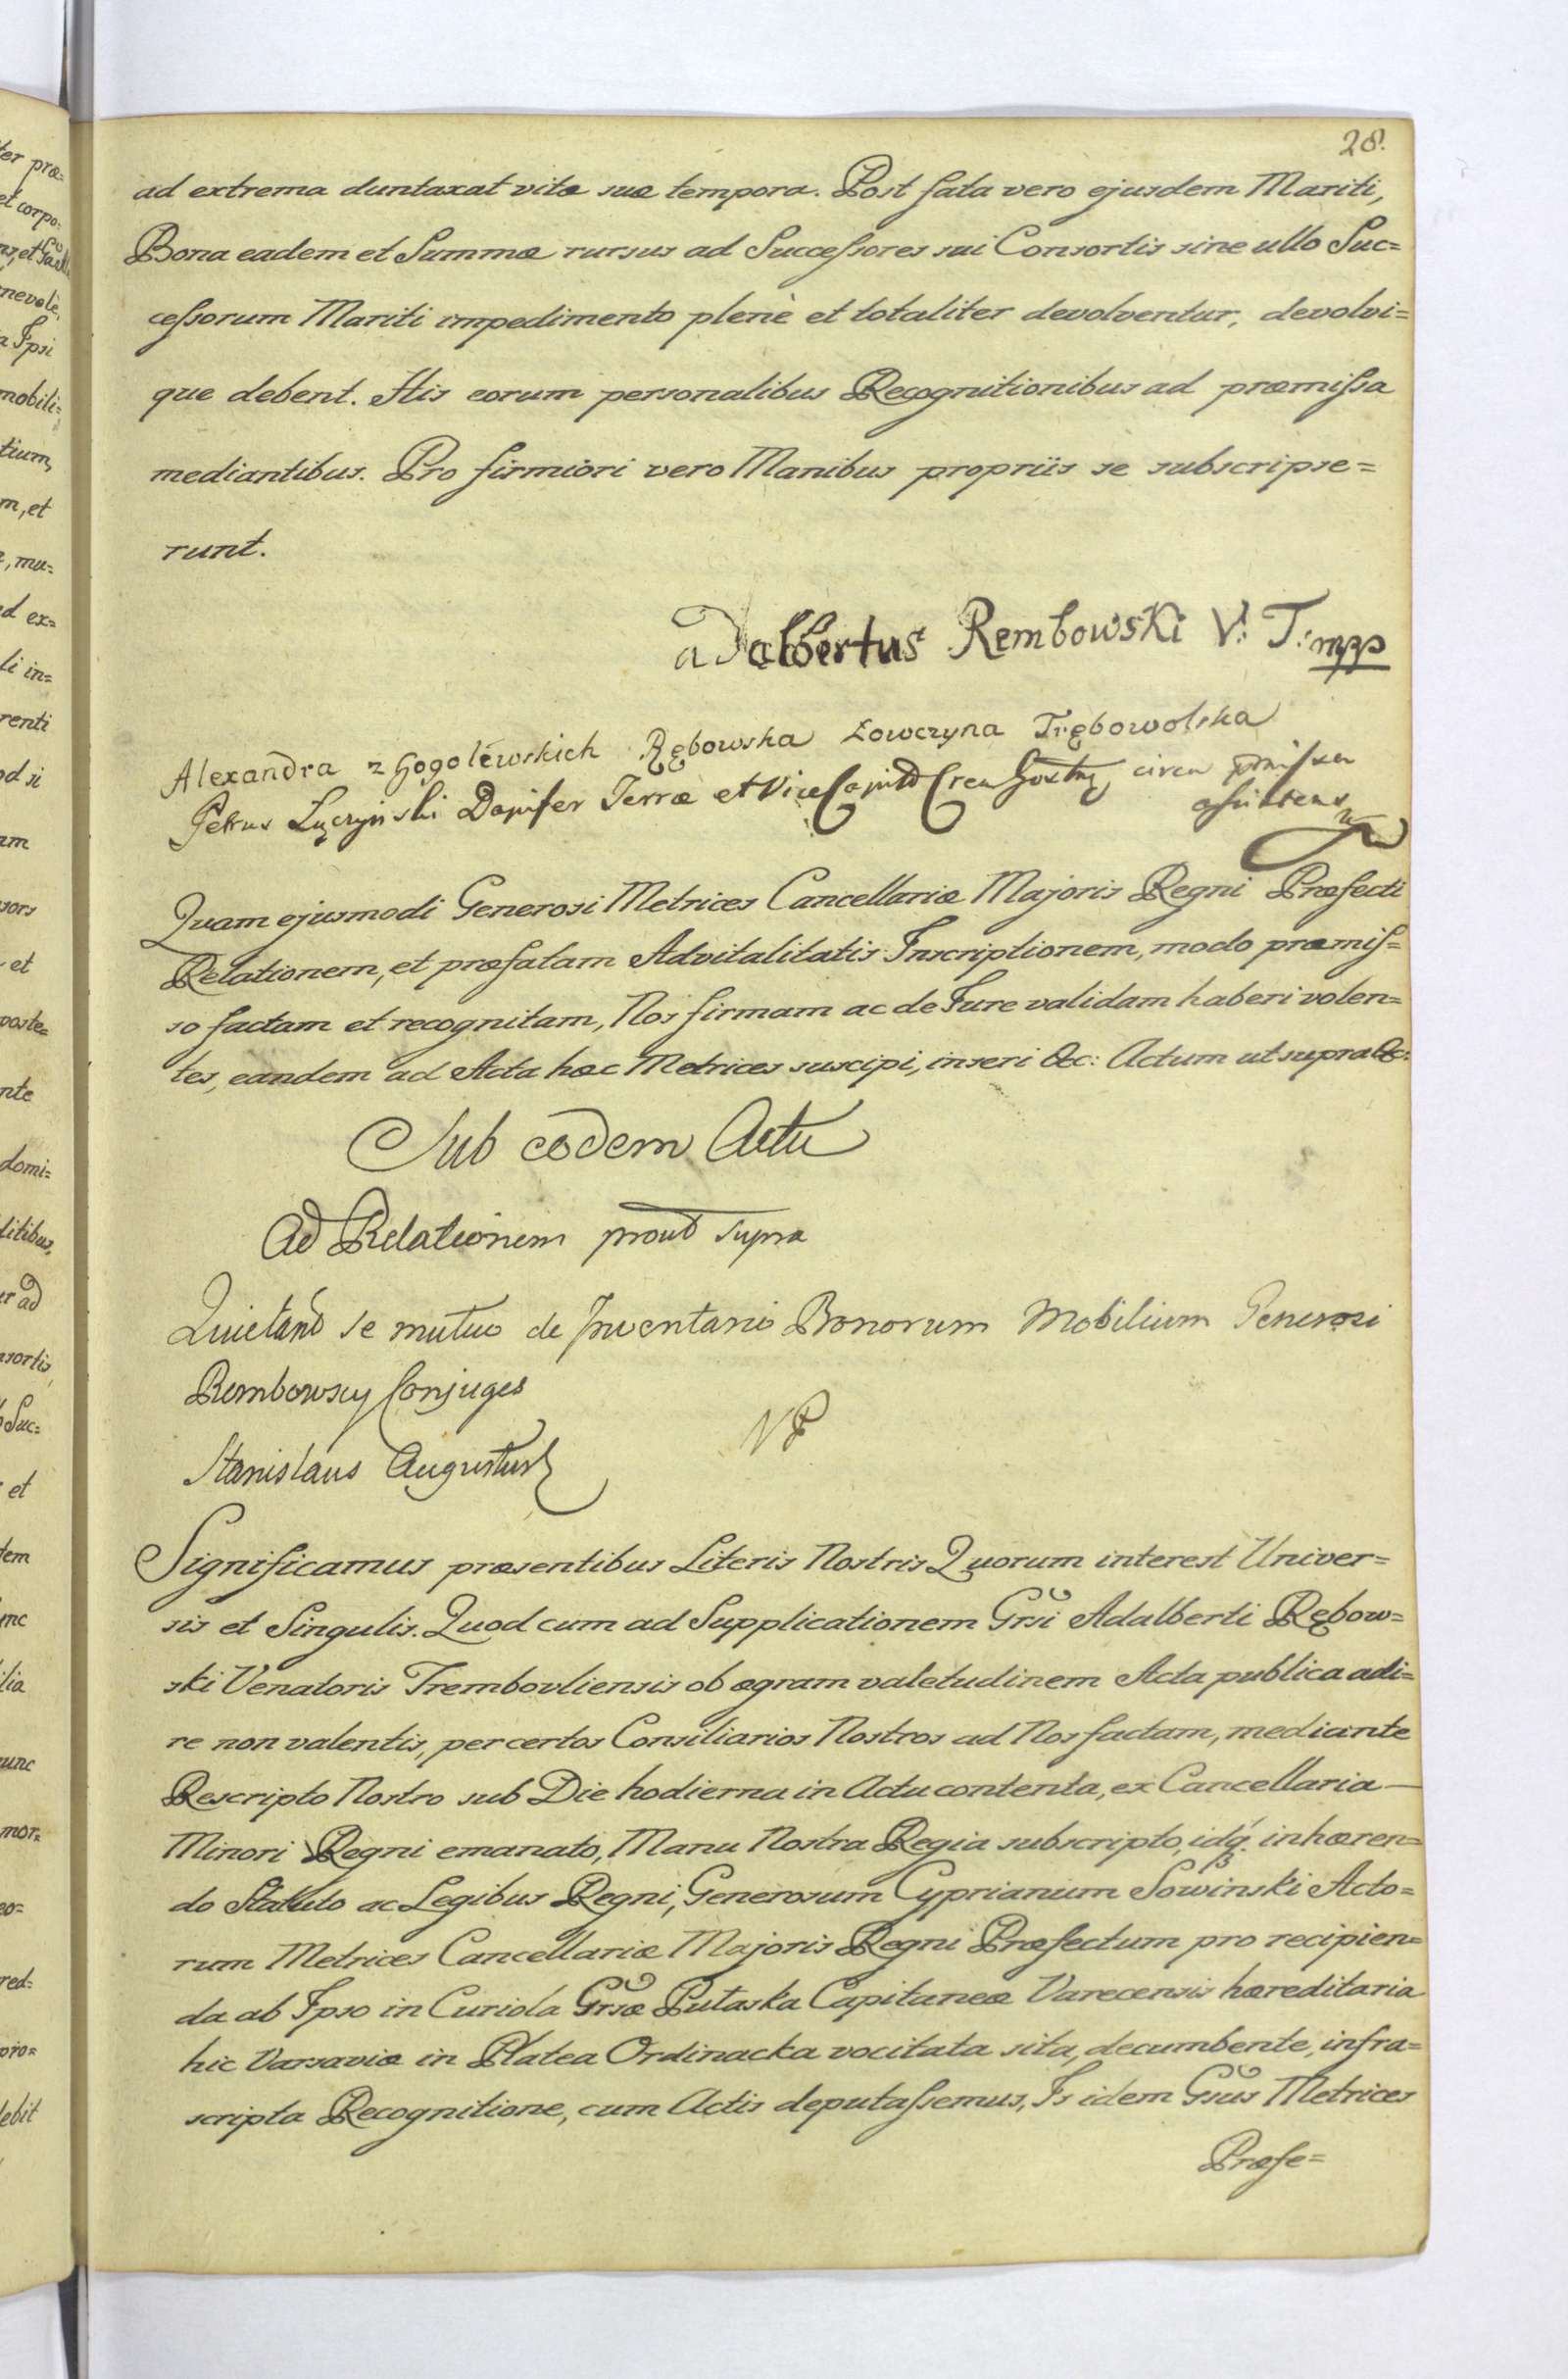 28.
ad extrema duntaxat vitæ suæ tempora. Post fata vero ejusdem Mariti,
Bona eadem et Summæ rursus ad Successores sui Consortis sine ullo Suc=
cessorum Mariti impedimento plenè et totaliter devolventur, devolvi=
que debent. His eorum personalibus Recognitionibus ad præmissa
mediantibus. Pro firmiori vero Manibus propriis se subscripse=
runt.
adalbertus Rembowski V: T: mpp
Alexandra z Gogolewskich Rębowska Łowczyna Trębowolska
Petrus Łączyński Dapifer Terræ et Vice Capit Cren Gostn circa pmissa
assistens
Quam ejusmodi Generosi Metrices Cancellariæ Majoris Regni Præfecti
Relationem, et præfatam Advitalitatis Inscriptionem, modo præmis=
so factam et recognitam, Nos firmam ac de Jure validam haberi volen=
tes, eandem ad Acta hæc Metrices suscipi, inseri &c: Actum ut supra &c:
Sub eodem Actu
Ad Relationem prout supra
Quietant se mutuo de Inventario Bonorum Mobilium Generosi
Rembowscy Conjuges
Stanislaus Augustus
Significamus præsentibus Literis Nostris Quorum interest Univer=
sis et Singulis. Quod cum ad Supplicationem Grsi Adalberti Rębow=
ski Venatoris Trembovliensis ob ægram valetudinem Acta publica adi=
re non valentis, per certos Consiliarios Nostros ad Nos factam, mediante
Rescripto Nostro sub Die hodierna in Actu contenta, ex Cancellaria —
Minori Regni emanato, Manu Nostra Regia subscripto, idq. inhæren=
do Statuto ac Legibus Regni, Generosum Cyprianum Sowinski Acto=
rum Metrices Cancellariæ Majoris Regni Præfectum pro recipien=
da ab Ipso in Curiola Grsæ Pułaska Capitaneæ Varecensis hæreditaria
hic Varsaviæ in Platea Ordinacka vocitata sita, decumbente, infra=
scripta Recognitione, cum Actis deputassemus, Is idem Gsus Metrices
Præfe=